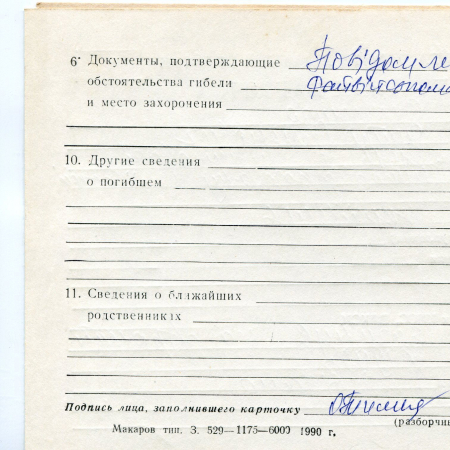 6· Документы, подтверждающие Повідомле
обстоятельства гибели
и место захорочения
10. Другие сведения
о погибшем
11. Сведения о ближайших
родственниках
Подпись лица, заполнившего карточку
(разборчи
Макаров тип. З. 529—1175—6000 1990 г.